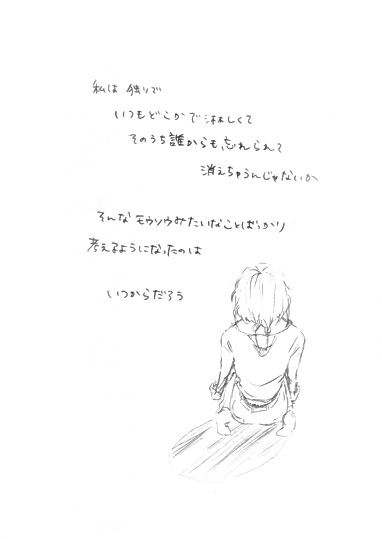 私は 独りで
いつもどこかで淋しくて
そのうち誰からも、忘れられて
消えちゃうんじゃないか
そんなモウソウみたいなことばっかり
考えるようになったのは
いつからだろう